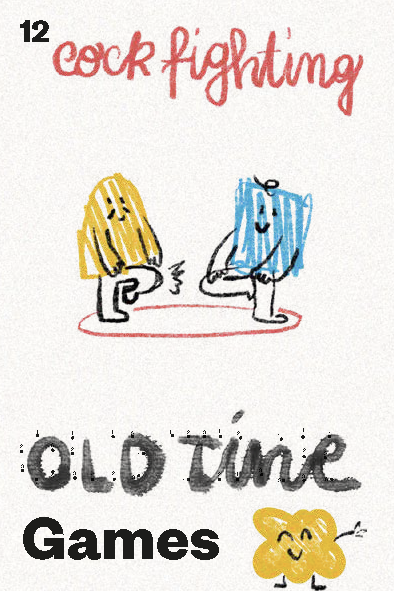 12
cock fighting
OLD Time
Games